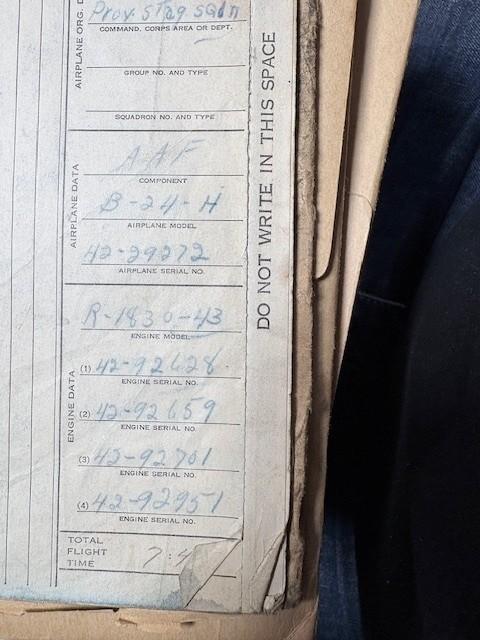 AIRPLANE ORG. D
Prov. Stag Sqdn
COMMAND, CORPS AREA OR DEPT.
GROUP NO. AND TYPE
SQUADRON NO. AND TYPE
AIRPLANE DATA
AAF
COMPONENT
B-24-H
AIRPLANE MODEL
42-29272
AIRPLANE SERIAL NO.
ENGINE DATA
R-1830-43
ENGINE MODEL
(1) 42-92628
ENGINE SERIAL NO.
(2) 42-92659
ENGINE SERIAL NO.
(3) 42-92701
ENGINE SERIAL NO.
(4) 42-92951
ENGINE SERIAL NO.
TOTAL
FLIGHT
TIME
7:4
DO NOT WRITE IN THIS SPACE